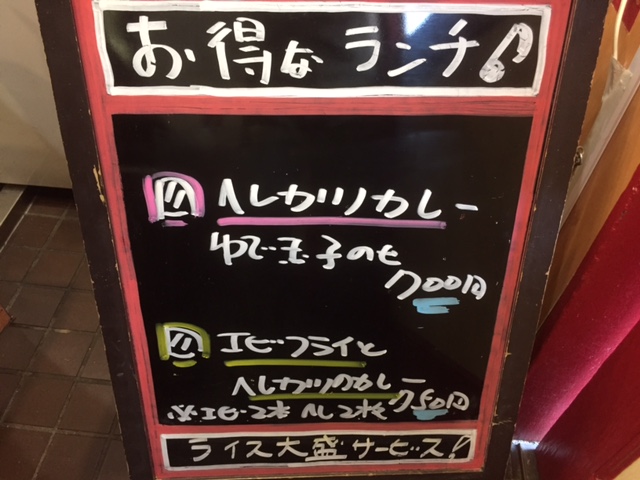 お得なランチ♪
A ヘレカツカレー
ゆで玉子のせ
700円
B エビフライと
ヘレカツカレー
※エビ2本 ヘレ2枚 750円
ライス大盛サービス!